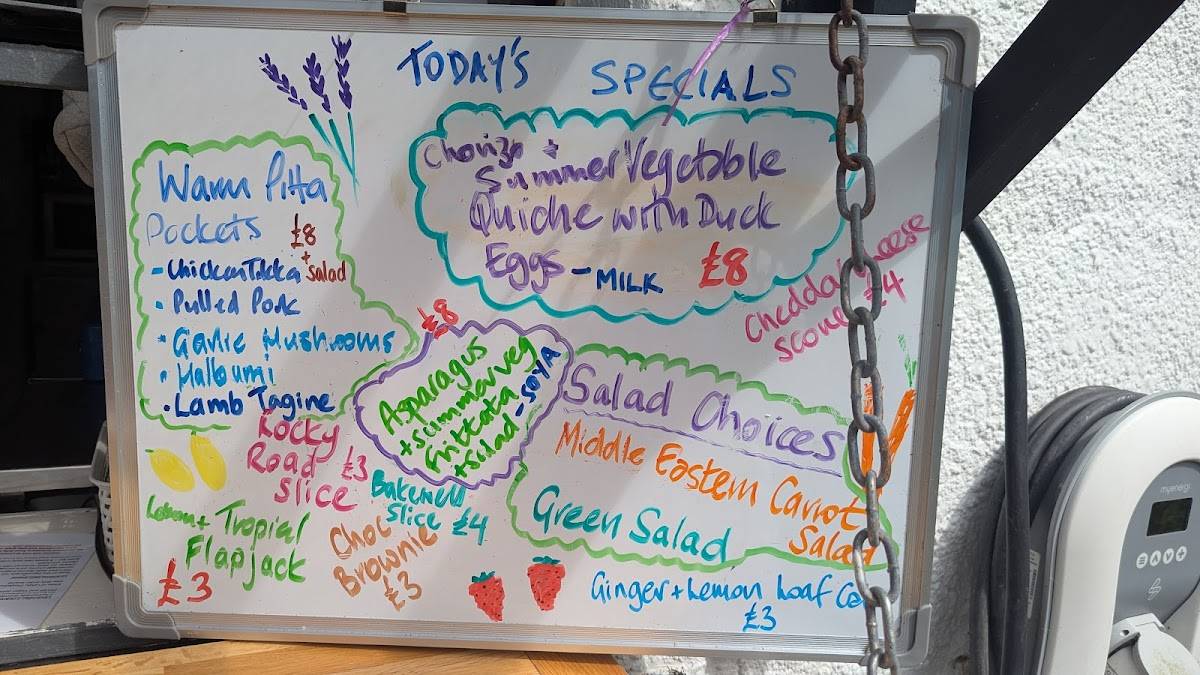 TODAY'S SPECIALS
Chorizo +
Summer Vegetable
Quiche with Duck
Eggs - MILK £8
Warm Pitta
Pockets £8
- Chicken Tikka + Salad
- Pulled Pork
- Garlic Mushrooms
- Halloumi
- Lamb Tagine
Cheddar Cheese
Scone £4
£8
Asparagus
+ summer veg
frittata
+ salad - SOYA
Salad Choices
Middle Eastern Carrot
Salad
Green Salad
Rocky
Road £3
Slice
Bakewell
Slice £4
Lemon + Tropial
Flapjack
£3
Choc
Brownie
£3
Ginger + Lemon Loaf
£3
myenergi